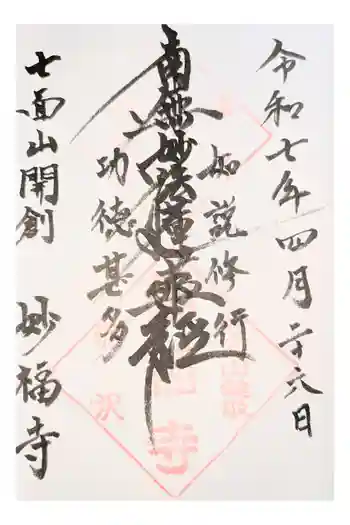 令和七年四月二十六日
如説修行
南無妙法蓮華経
功徳甚多
七面山開創 妙福寺